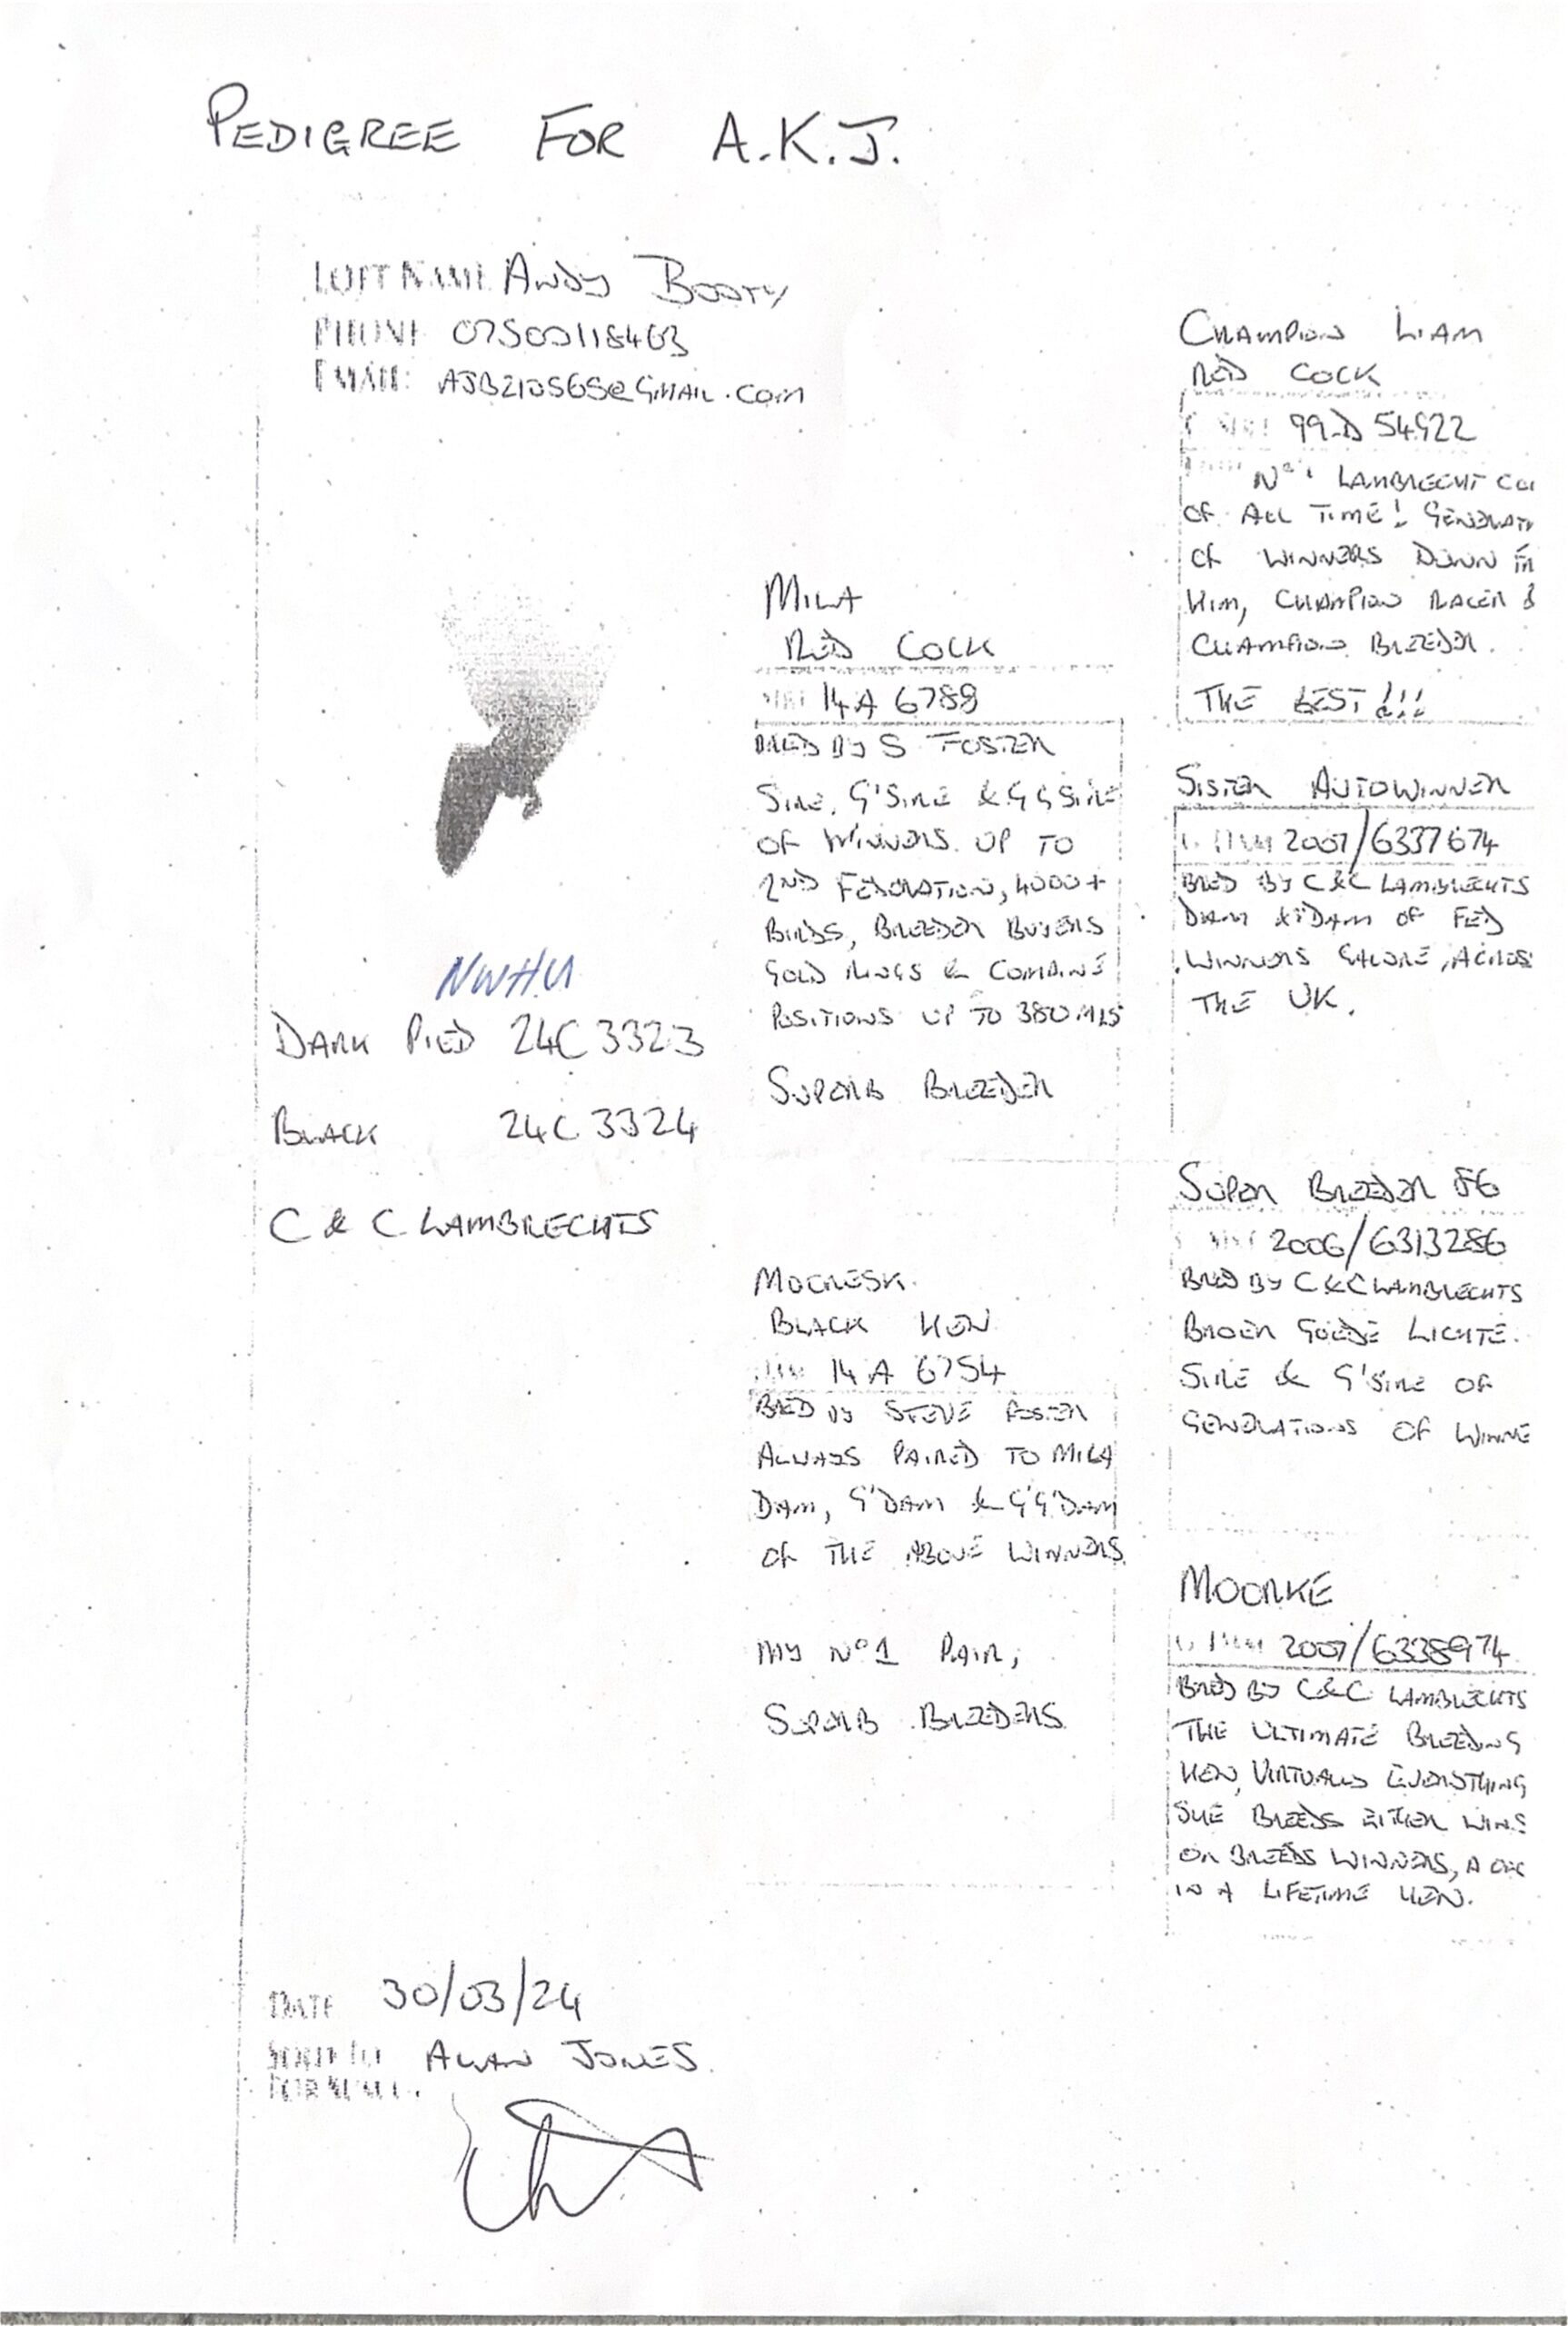 PEDIGREE FOR A.K.J.
LOFT NAME ANDY BOOTY
PHONE 07500118463
EMAIL: AJB210565@GMAIL.COM
NWHU
DARK PIED 24C 3323
BLACK 24C 3324
C & C LAMBRECHTS
DATE 30/03/24
SOLD TO ALAN JONES.
MILA
RED COCK
14 A 6788
BRED BY S FOSTER
SIRE, G'SIRE & G G SIRE
OF WINNERS UP TO
2ND FEDERATION, 4000+
BIRDS, BREEDER BUYERS
GOLD RINGS & COMBINE
POSITIONS UP TO 380 MLS
SUPERB BREEDER
BLACK HEN
14 A 6754
BRED BY STEVE FOSTER
ALWAYS PAIRED TO MILA
DAM, G'DAM & G'G'DAM
OF THE ABOVE WINNERS
MY NO 1 PAIR,
SUPERB BREEDERS
CHAMPION LIAM
RED COCK
99-D 54922
No 1 LAMBRECHT
OF ALL TIME! GENERATI
OF WINNERS DOWN
HIM, CHAMPION RACER &
CHAMPION BREEDER.
THE BEST!!!
SISTER AUTOWINNER
2007/6337674
BRED BY C&C LAMBRECHTS
DAM & G'DAM OF FED
WINNERS GALORE, ACROSS
THE UK.
SUPER BREEDER 86
2006/6313286
BRED BY C & C LAMBRECHTS
BROER GOEDE LICHTE.
SIRE & G'SIRE OF
GENERATIONS OF WINNE
MOORKE
2007/6338974
BRED BY C&C LAMBRECHTS
THE ULTIMATE BREEDING
HEN, VIRTUALLY EVERYTHING
SHE BREEDS EITHER WINS
OR BREEDS WINNERS, A
IN A LIFETIME HEN.